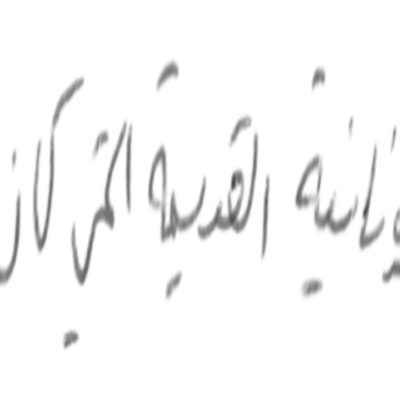 نانية القديمة التي كان